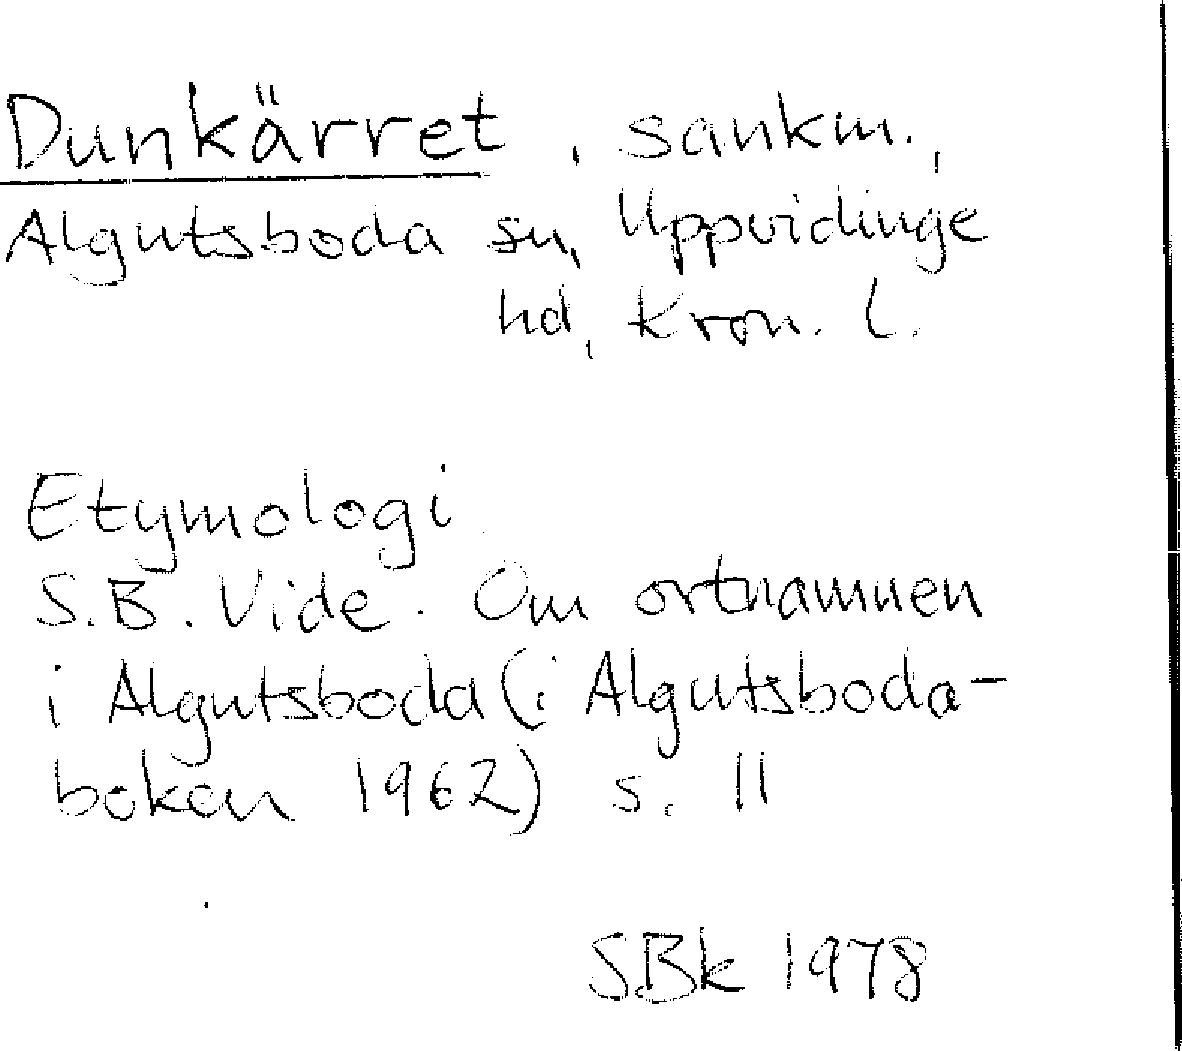 Dunkärret, sankm.,
Algutsboda sn, Uppvidinge
hd, Kron. l.
Etymologi
S.B. Vide. Om ortnamnen
i Algutsboda (i Algutsboda-
boken 1962) s. 11
SBk 1978